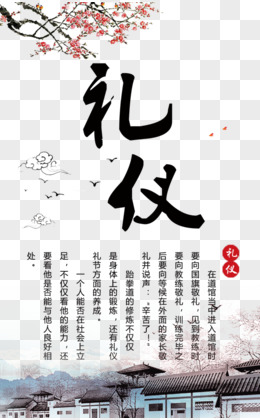 礼仪
礼仪
在道馆当中进入道馆时
要向国旗敬礼，见到教练时
要向教练敬礼，训练完毕之
后要向等候在外面的家长敬
礼并说声："辛苦了！"。
跆拳道的修炼不仅仅
是身体上的锻炼，还有礼仪
礼节方面的养成。
一个人能否在社会上立
足，不仅仅看他的能力，还
要看他是否能与他人良好相
处。